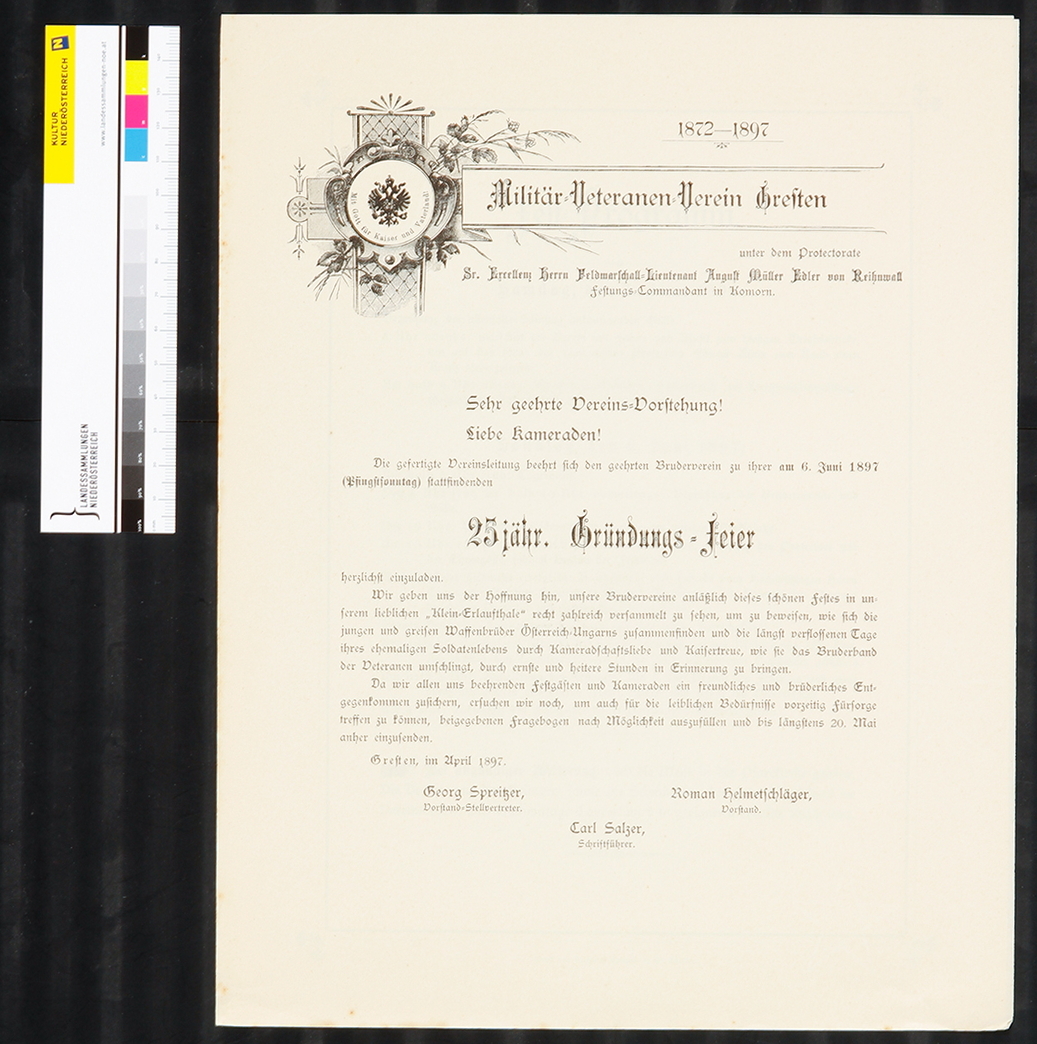 KULTUR
NIEDERÖSTERREICH
www.landessammlungen-noe.at
LANDESSAMMLUNGEN
NIEDERÖSTERREICH
1872—1897
Mit Gott für Kaiser und Vaterland!
Militär-Veteranen-Verein Gresten
unter dem Protectorate
Sr. Excellenz Herrn Feldmarschall-Lieutenant August Müller Edler von Reihnwall
Festungs-Commandant in Komorn.
Sehr geehrte Vereins-Vorstehung!
Liebe Kameraden!
Die gefertigte Vereinsleitung beehrt sich den geehrten Bruderverein zu ihrer am 6. Juni 1897
(Pfingstsonntag) stattfindenden
25jähr. Gründungs-Feier
herzlichst einzuladen.
Wir geben uns der Hoffnung hin, unsere Brudervereine anläßlich dieses schönen Festes in un-
serem lieblichen „Klein-Erlaufthale“ recht zahlreich versammelt zu sehen, um zu beweisen, wie sich die
jungen und greisen Waffenbrüder Österreich-Ungarns zusammenfinden und die längst verflossenen Tage
ihres ehemaligen Soldatenlebens durch Kameradschaftsliebe und Kaisertreue, wie sie das Bruderband
der Veteranen umschlingt, durch ernste und heitere Stunden in Erinnerung zu bringen.
Da wir allen uns beehrenden Festgästen und Kameraden ein freundliches und brüderliches Ent-
gegenkommen zusichern, ersuchen wir noch, um auch für die leiblichen Bedürfnisse vorzeitig Fürsorge
treffen zu können, beigegebenen Fragebogen nach Möglichkeit auszufüllen und bis längstens 20. Mai
anher einzusenden.
Gresten, im April 1897.
Georg Spreitzer,
Vorstand-Stellvertreter.
Roman Helmetschläger,
Vorstand.
Carl Salzer,
Schriftführer.